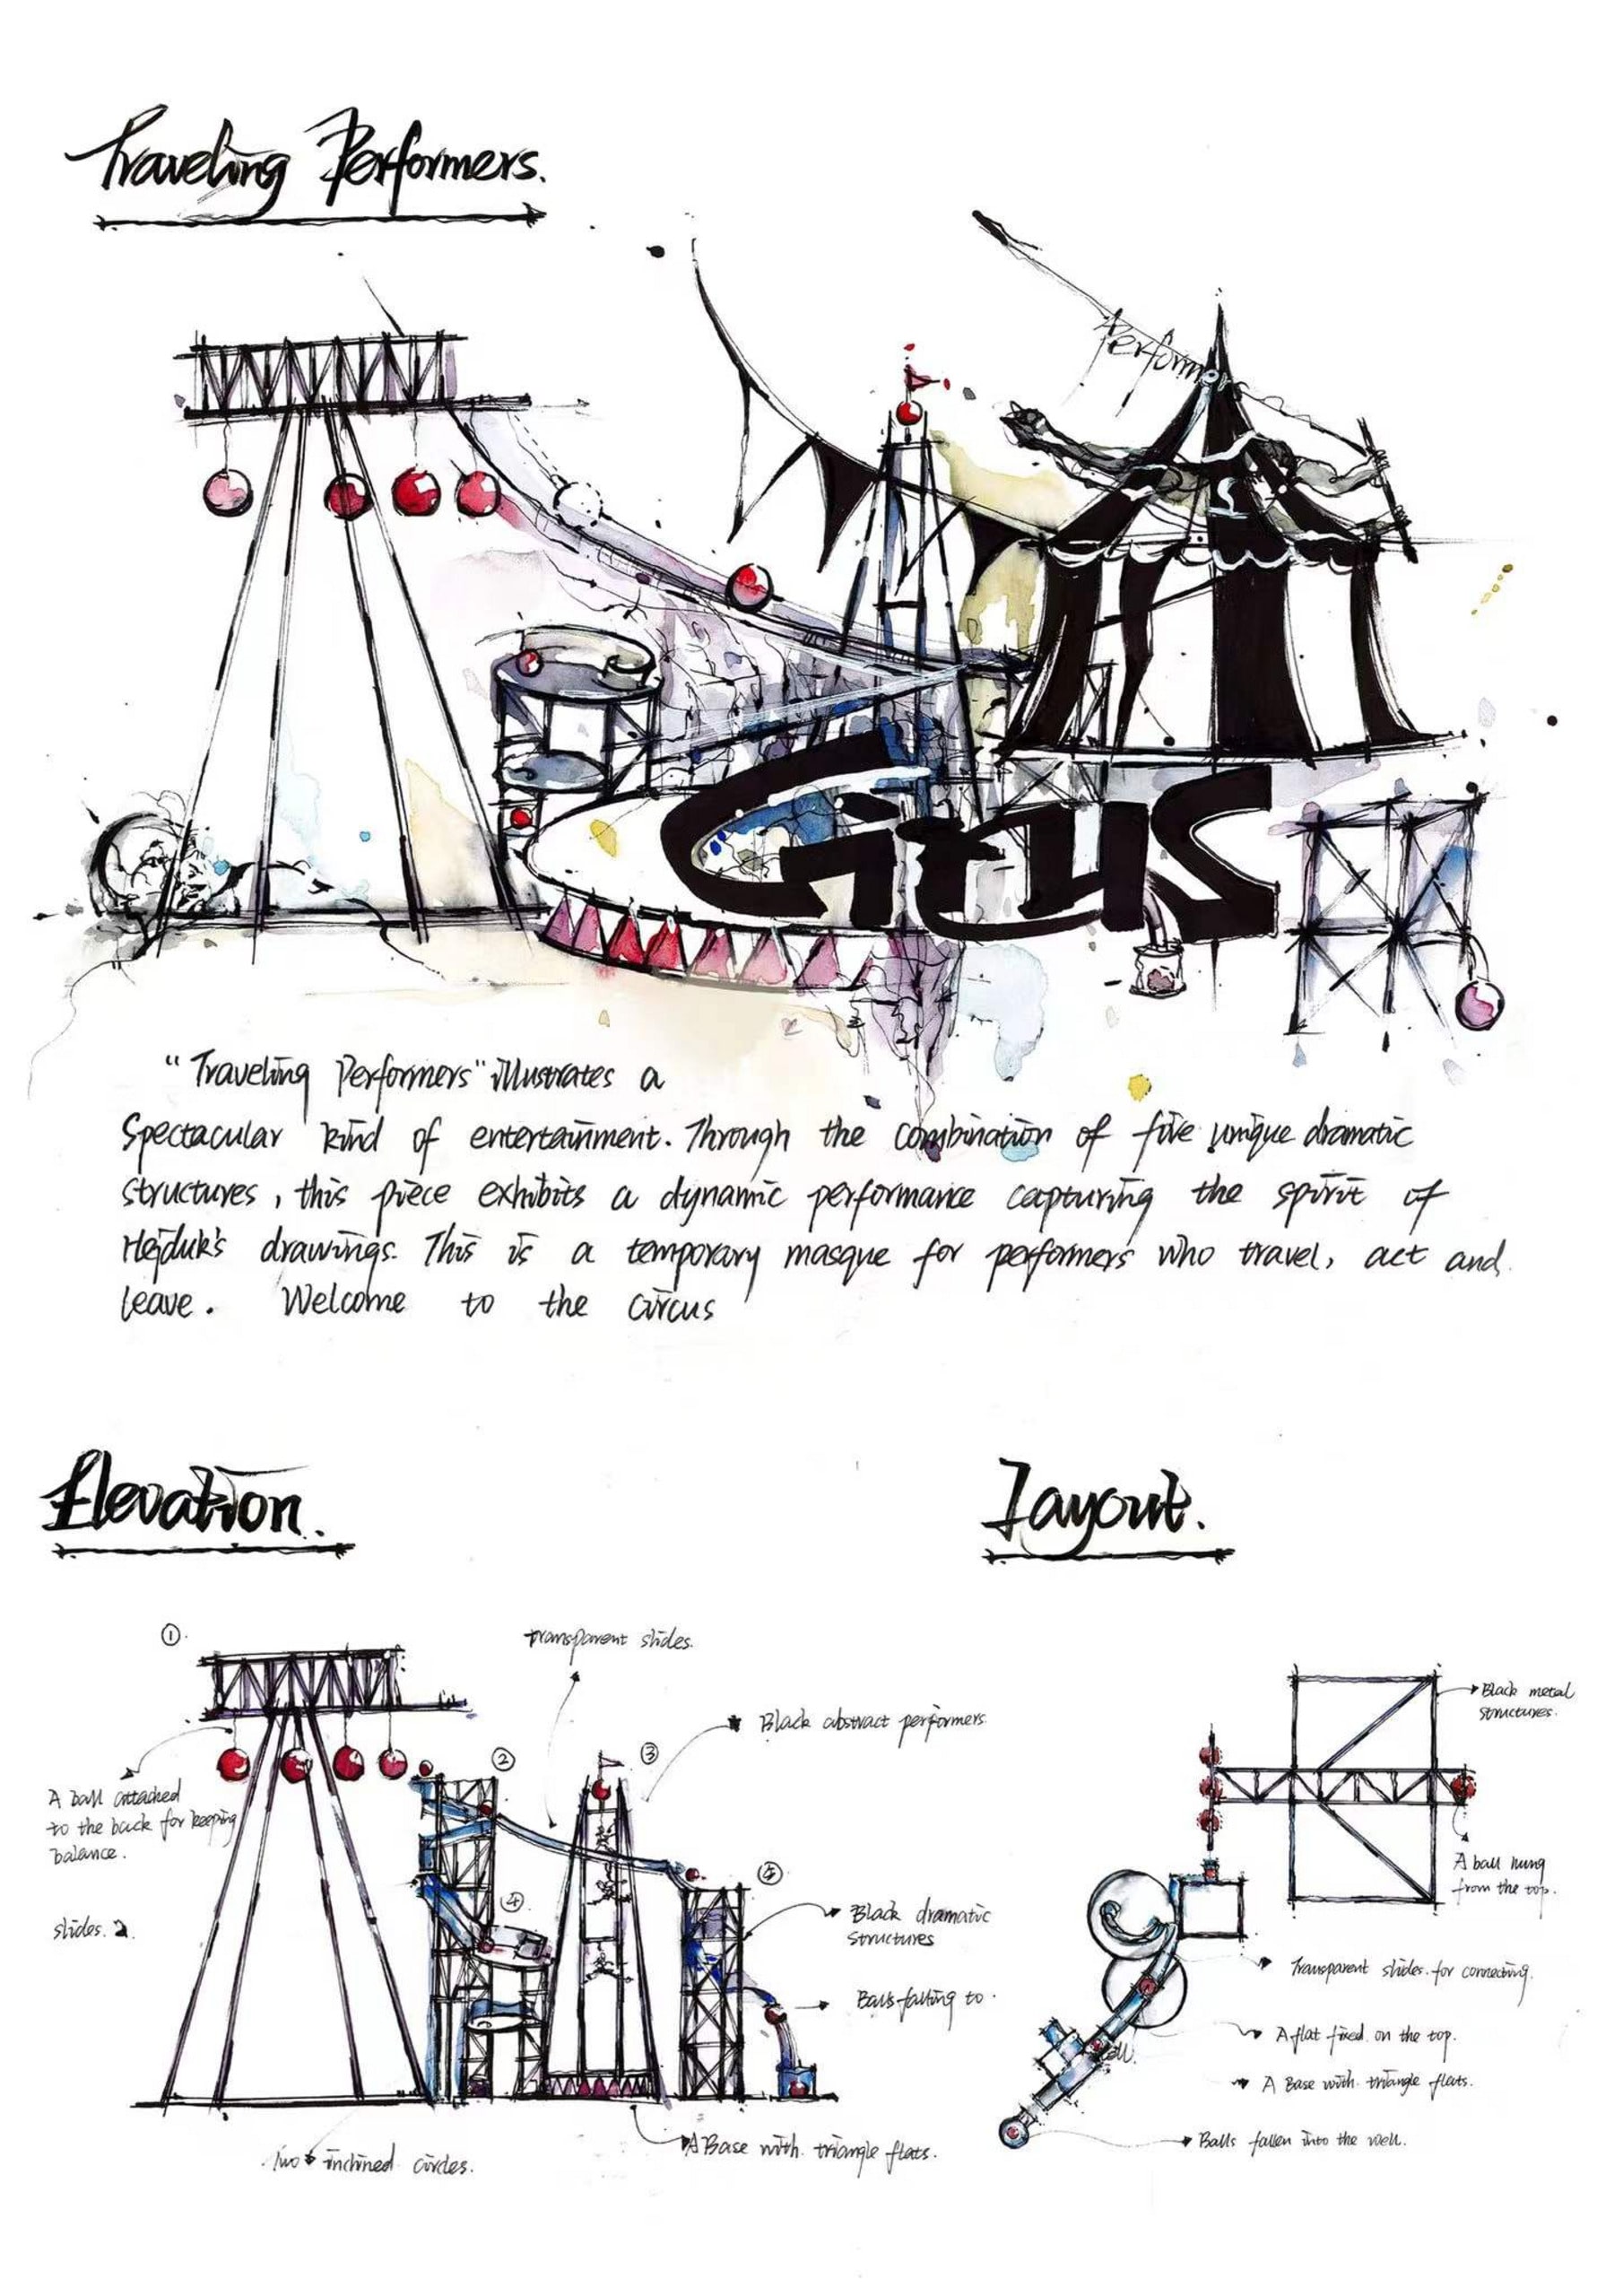 Traveling Performers.
Performers
Circus
"Traveling Performers" illustrates a
Spectacular kind of entertainment. Through the combination of five unique dramatic
structures, this piece exhibits a dynamic performance capturing the spirit of
Hejduk's drawings. This is a temporary masque for performers who travel, act and
leave. Welcome to the circus
Elevation.
Layout.
①
transparent slides.
Black abstract performers.
②
③
A ball attached
to the back for keeping
balance.
④
⑤
slides.
Black dramatic
structures
Balls falling to.
Two inclined circles.
A Base with triangle flats.
Black metal
structures.
A ball hung
from the top.
Transparent slides for connecting.
A flat fixed on the top.
A Base with triangle flats.
Balls fallen into the well.